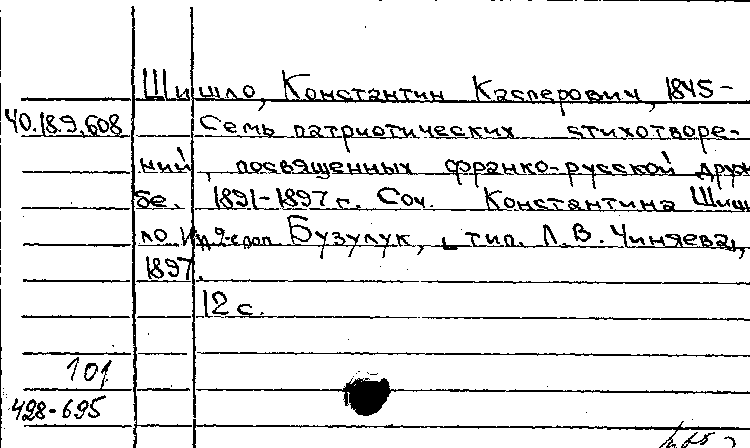 Шишло, Константин Касперович, 1845-
40.18.9.608 Семь патриотических стихотворе-
ний, посвященных франко-русской друж
бе. 1891-1897 г. Соч. Константина Шиш
ло. Изд. 2-е доп. Бузулук, тип. Л. В. Чиняева,
1897.
12 с.
101
428-695